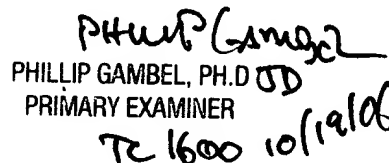 PHILLIP GAMBEL
PHILLIP GAMBEL, PH.D JD
PRIMARY EXAMINER
TC 1600 10/19/06